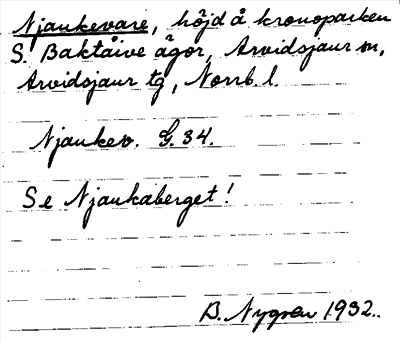 Njaukevare, höjd å kronoparken
S. Baktåive ägor, Arvidsjaur sn,
Arvidsjaur tg, Norrb. l.
Njaukev. G. 34.
Se Njaukaberget!
B. Nygren 1932..